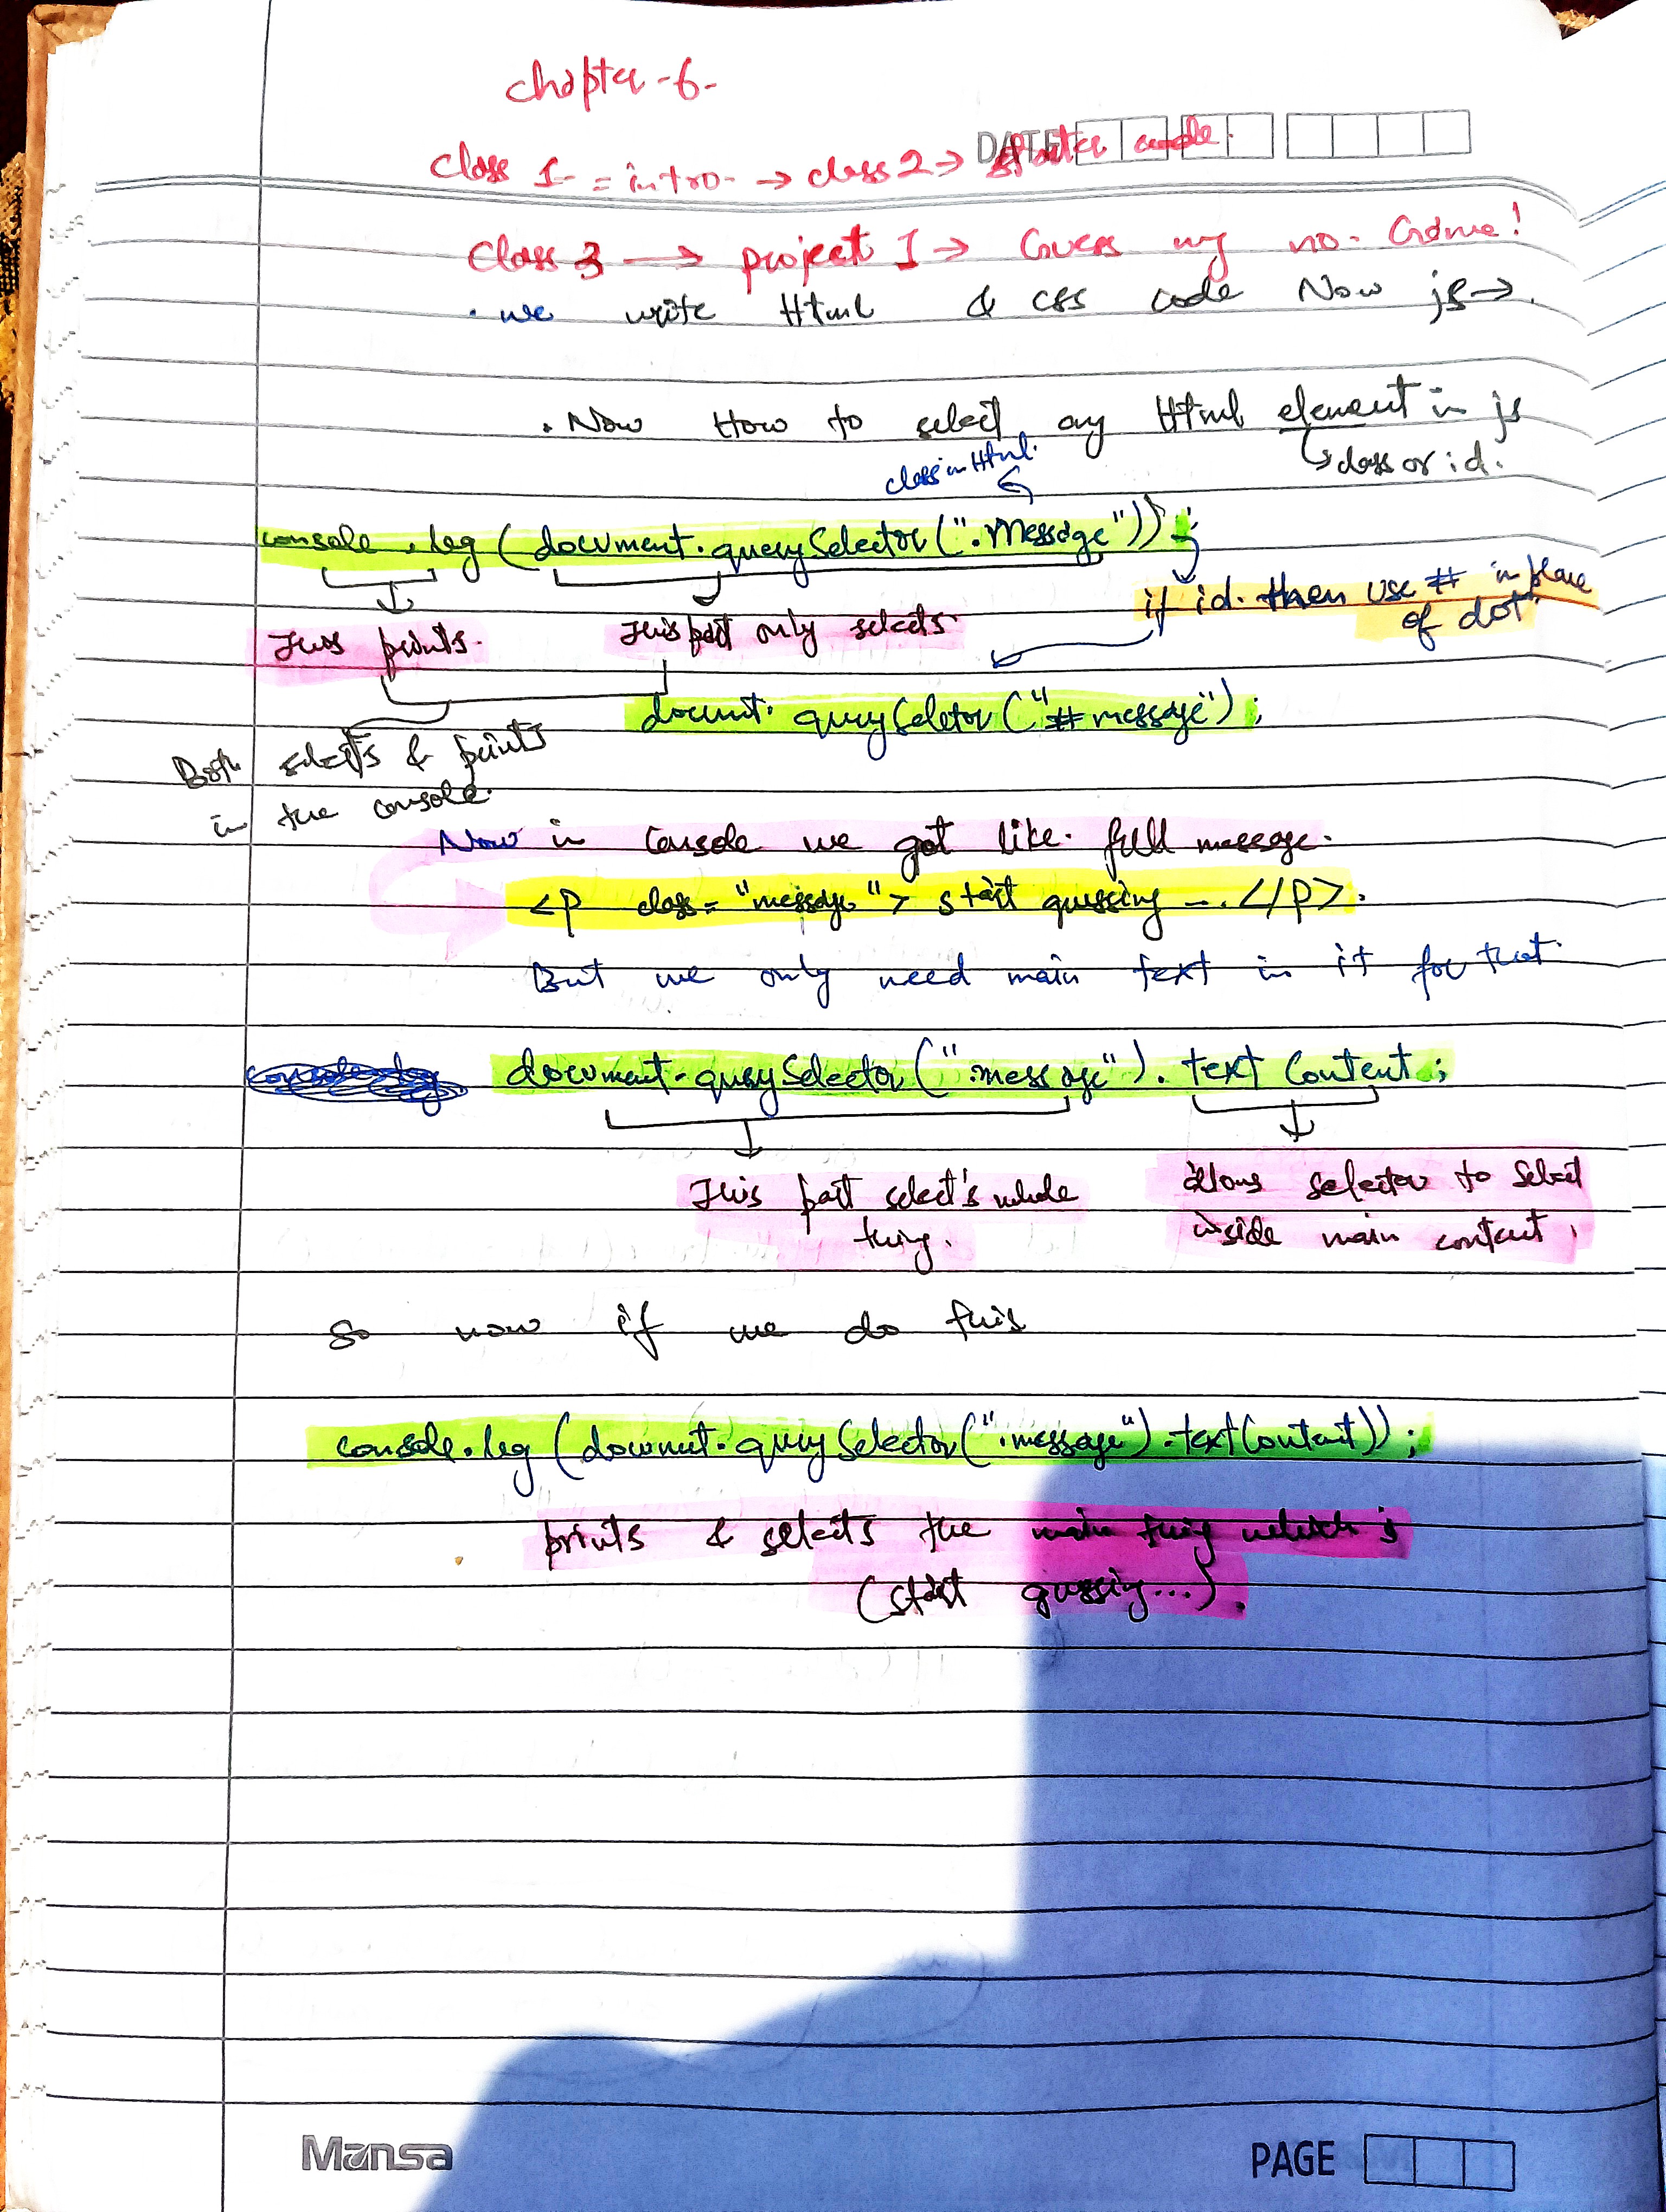 Chapter -6-
DATE
Class 1- = intro- → class 2 → starter code.
Class 3 → project 1 → Guess my no. Game!
. we write Html & css code Now js →.
. Now How to select any Html element in js
↳ class or id.
class in Html.
console.log(document.querySelector(".Message"));
if id. then use # in place
of dot
This prints.
This part only selects.
documt.querySeletor("#message");
Both selects & prints
in the console.
Now in console we got like. full message.
<p class="message"> start guessing -. </p>.
But we only need main text in it for that.
document.querySelector(".message").textContent;
This part select's whole
thing.
allows selector to select
inside main content.
So now if we do this
console.log(documet.querySelector(".message").textContent));
prints & selects the main thing which is
(start gussing...).
Mansa
PAGE